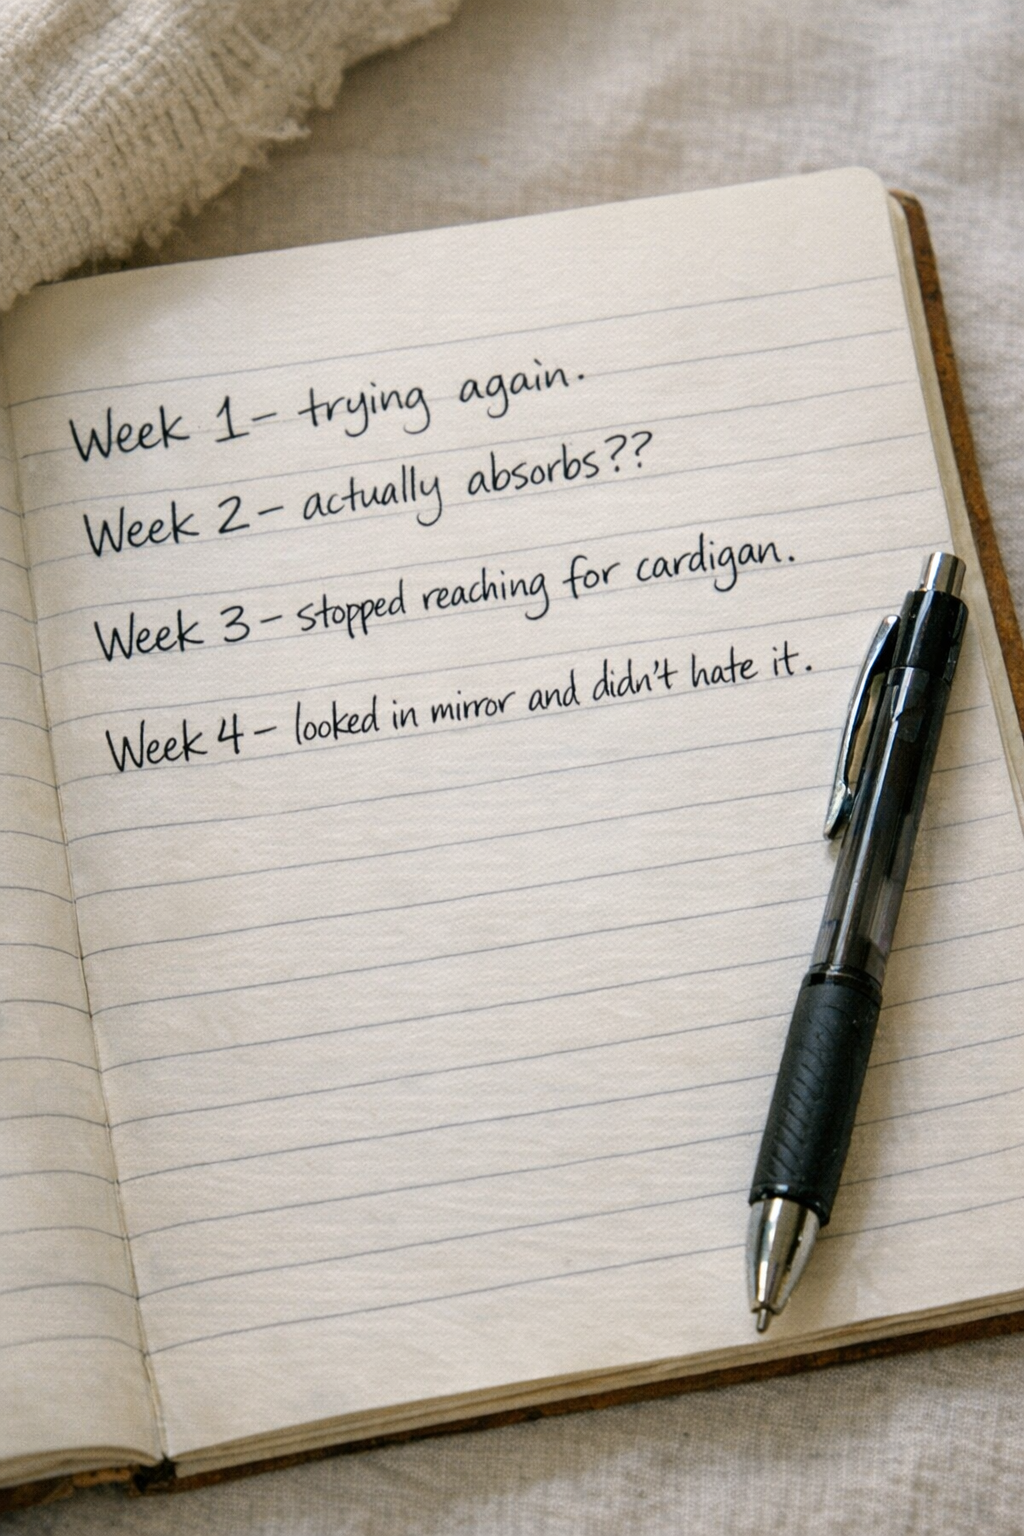 Week 1 – trying again.
Week 2 – actually absorbs??
Week 3 – stopped reaching for cardigan.
Week 4 – looked in mirror and didn't hate it.